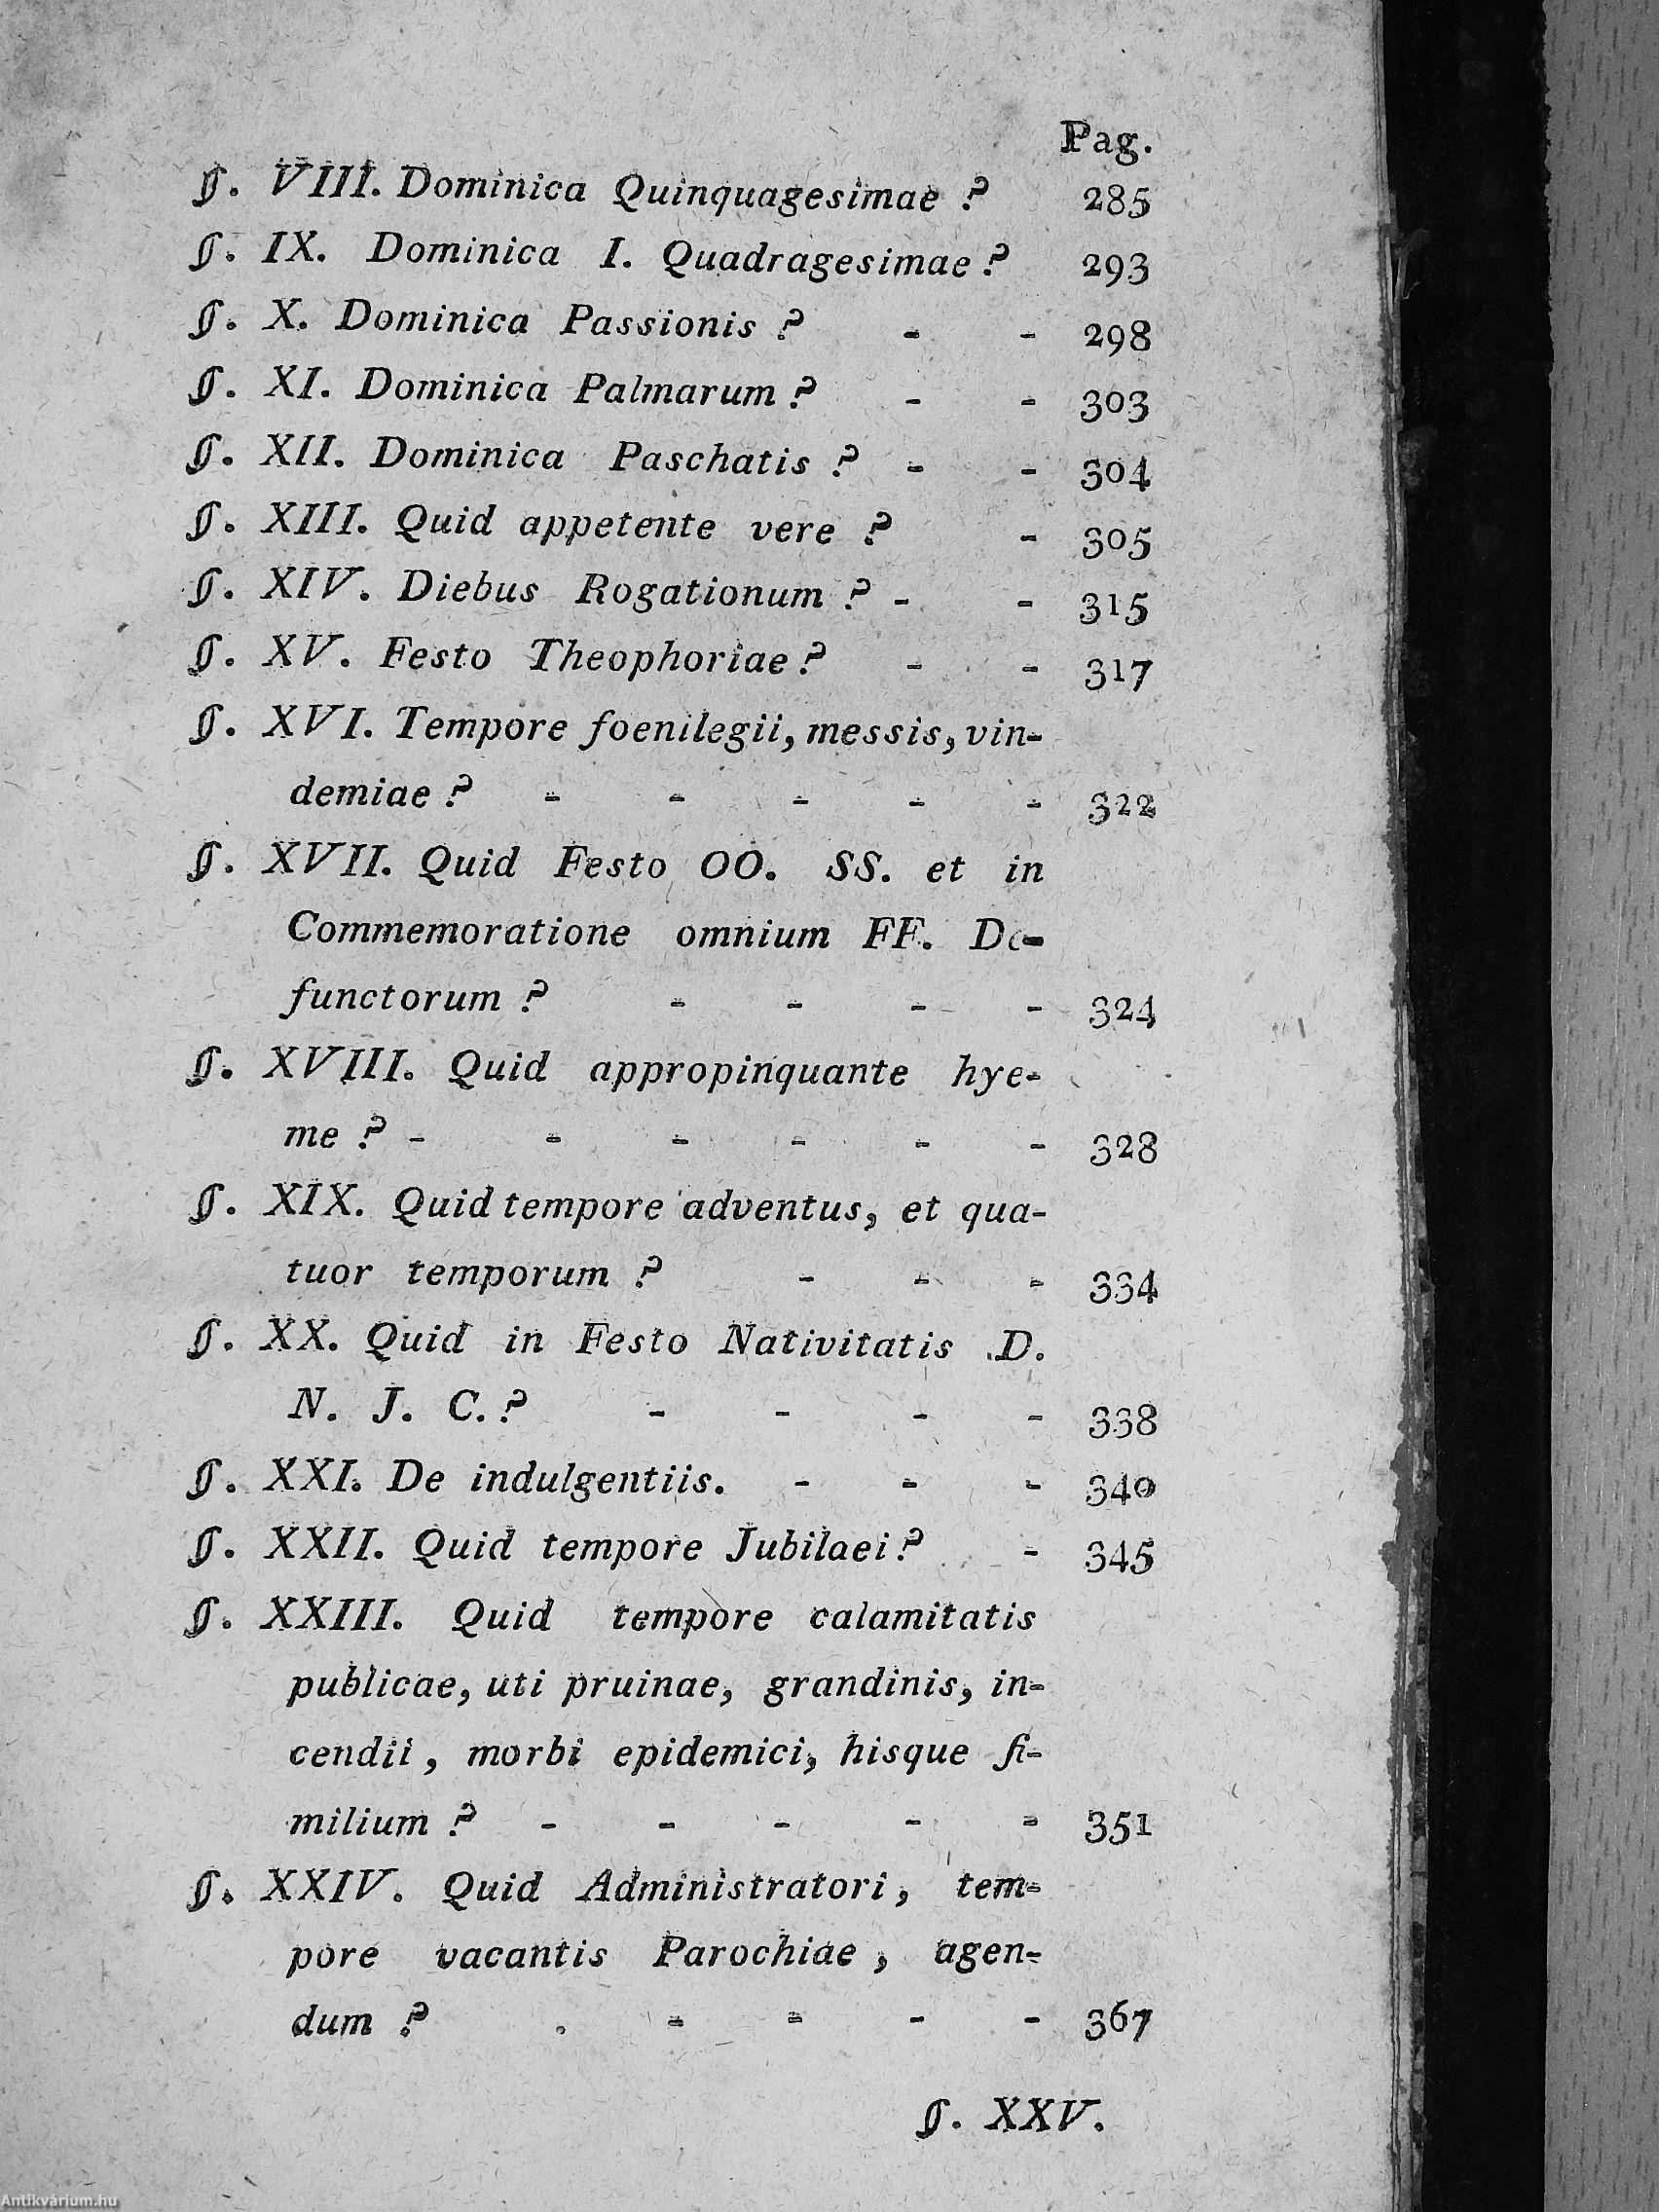 Pag.
§. VIII. Dominica Quinquagesimae ? 285
§. IX. Dominica I. Quadragesimae ? 293
§. X. Dominica Passionis ? - - 298
§. XI. Dominica Palmarum ? - - 303
§. XII. Dominica Paschatis ? - - 304
§. XIII. Quid appetente vere ? - 305
§. XIV. Diebus Rogationum ? - - 315
§. XV. Festo Theophoriae ? - - 317
§. XVI. Tempore foenilegii, messis, vin-
demiae ? - - - - - 322
§. XVII. Quid Festo OO. SS. et in
Commemoratione omnium FF. De-
functorum ? - - - - 324
§. XVIII. Quid appropinquante hye-
me ? - - - - - - 328
§. XIX. Quid tempore adventus, et qua-
tuor temporum ? - - - 334
§. XX. Quid in Festo Nativitatis D.
N. J. C. ? - - - - 338
§. XXI. De indulgentiis. - - - 340
§. XXII. Quid tempore Jubilaei ? - 345
§. XXIII. Quid tempore calamitatis
publicae, uti pruinae, grandinis, in-
cendii, morbi epidemici, hisque ſi-
milium ? - - - - - 351
§. XXIV. Quid Administratori, tem-
pore vacantis Parochiae, agen-
dum ? . - - - - 367
§. XXV.
Antikvárium.hu